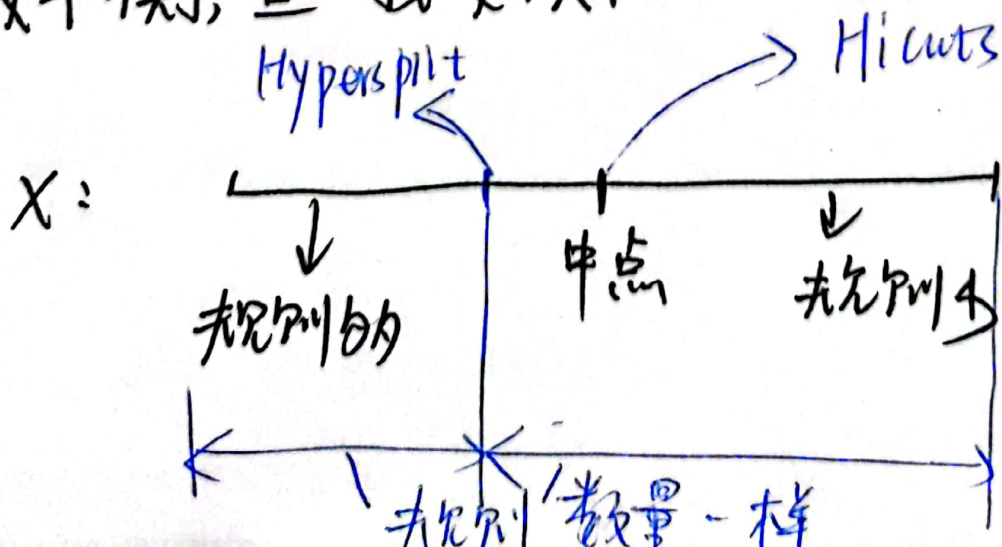 Hypersplit
Hicuts
X:
中点
规则的
规则少
规则数量一样